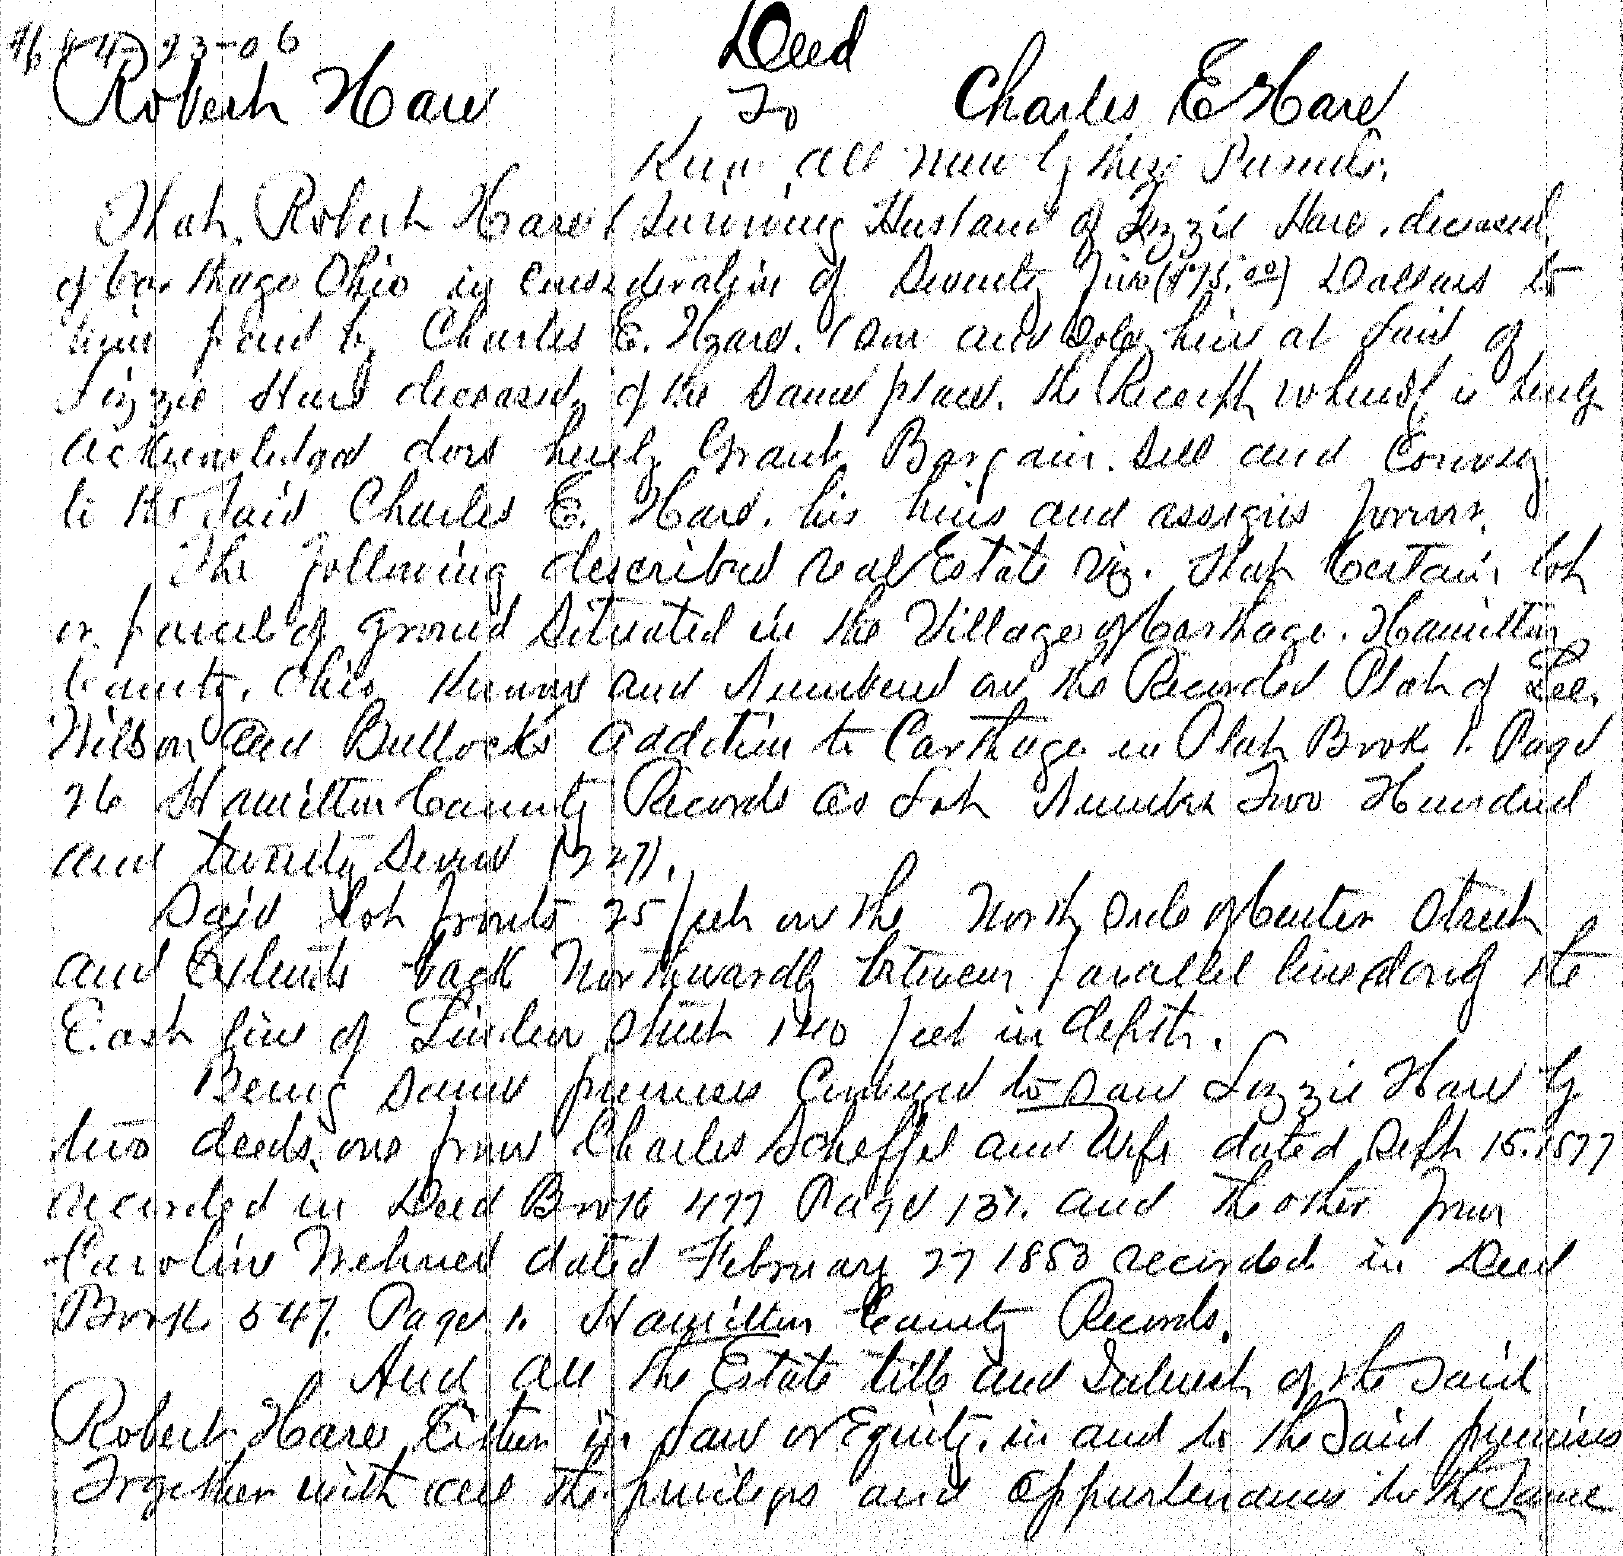 4-23-06
Deed
Robert Hare To Charles E Hare
Know all men by these Presents.
That Robert Hare, surviving Husband of Lizzie Hare, deceased,
of Carthage Ohio in consideration of Seventy Five ($75.00) Dollars to
him paid by Charles E. Hare. (Son and Sole heir at Law of
Lizzie Hare deceased, of the same place. the Receipt whereof is hereby
acknowledged does hereby Grant Bargain. Sell and Convey
to the said Charles E. Hare. his heirs and assigns forever.
The following described real Estate viz. That Certain lot
or parcel of ground Situated in the Village of Carthage. Hamilton
County. Ohio Known and Numbered on the Recorded Plat of Lee,
Wilson and Bullock's addition to Carthage in Plat Book 1. Page
26 Hamilton County Records as Lot Number Two Hundred
and twenty Seven (227).
Said lot fronts 25 feet on the North Side of Center Street
and Extends back Northwardly between parallel lines along the
East line of Linden Street 140 feet in depth.
Being Same premises Conveyed to said Lizzie Hare by
two deeds, one from Charles Scheffel and Wife dated Sept 15. 1877
recorded in Deed Book 477 Page 137. and the other from
Caroline Wehner dated February 27 1883 recorded in Deed
Book 547. Page 1. Hamilton County Records.
And all the Estate title and Interest of the Said
Robert Hare, Either in Law or Equity. in and to the Said premises
Together with all the privileges and appurtenances to the Same